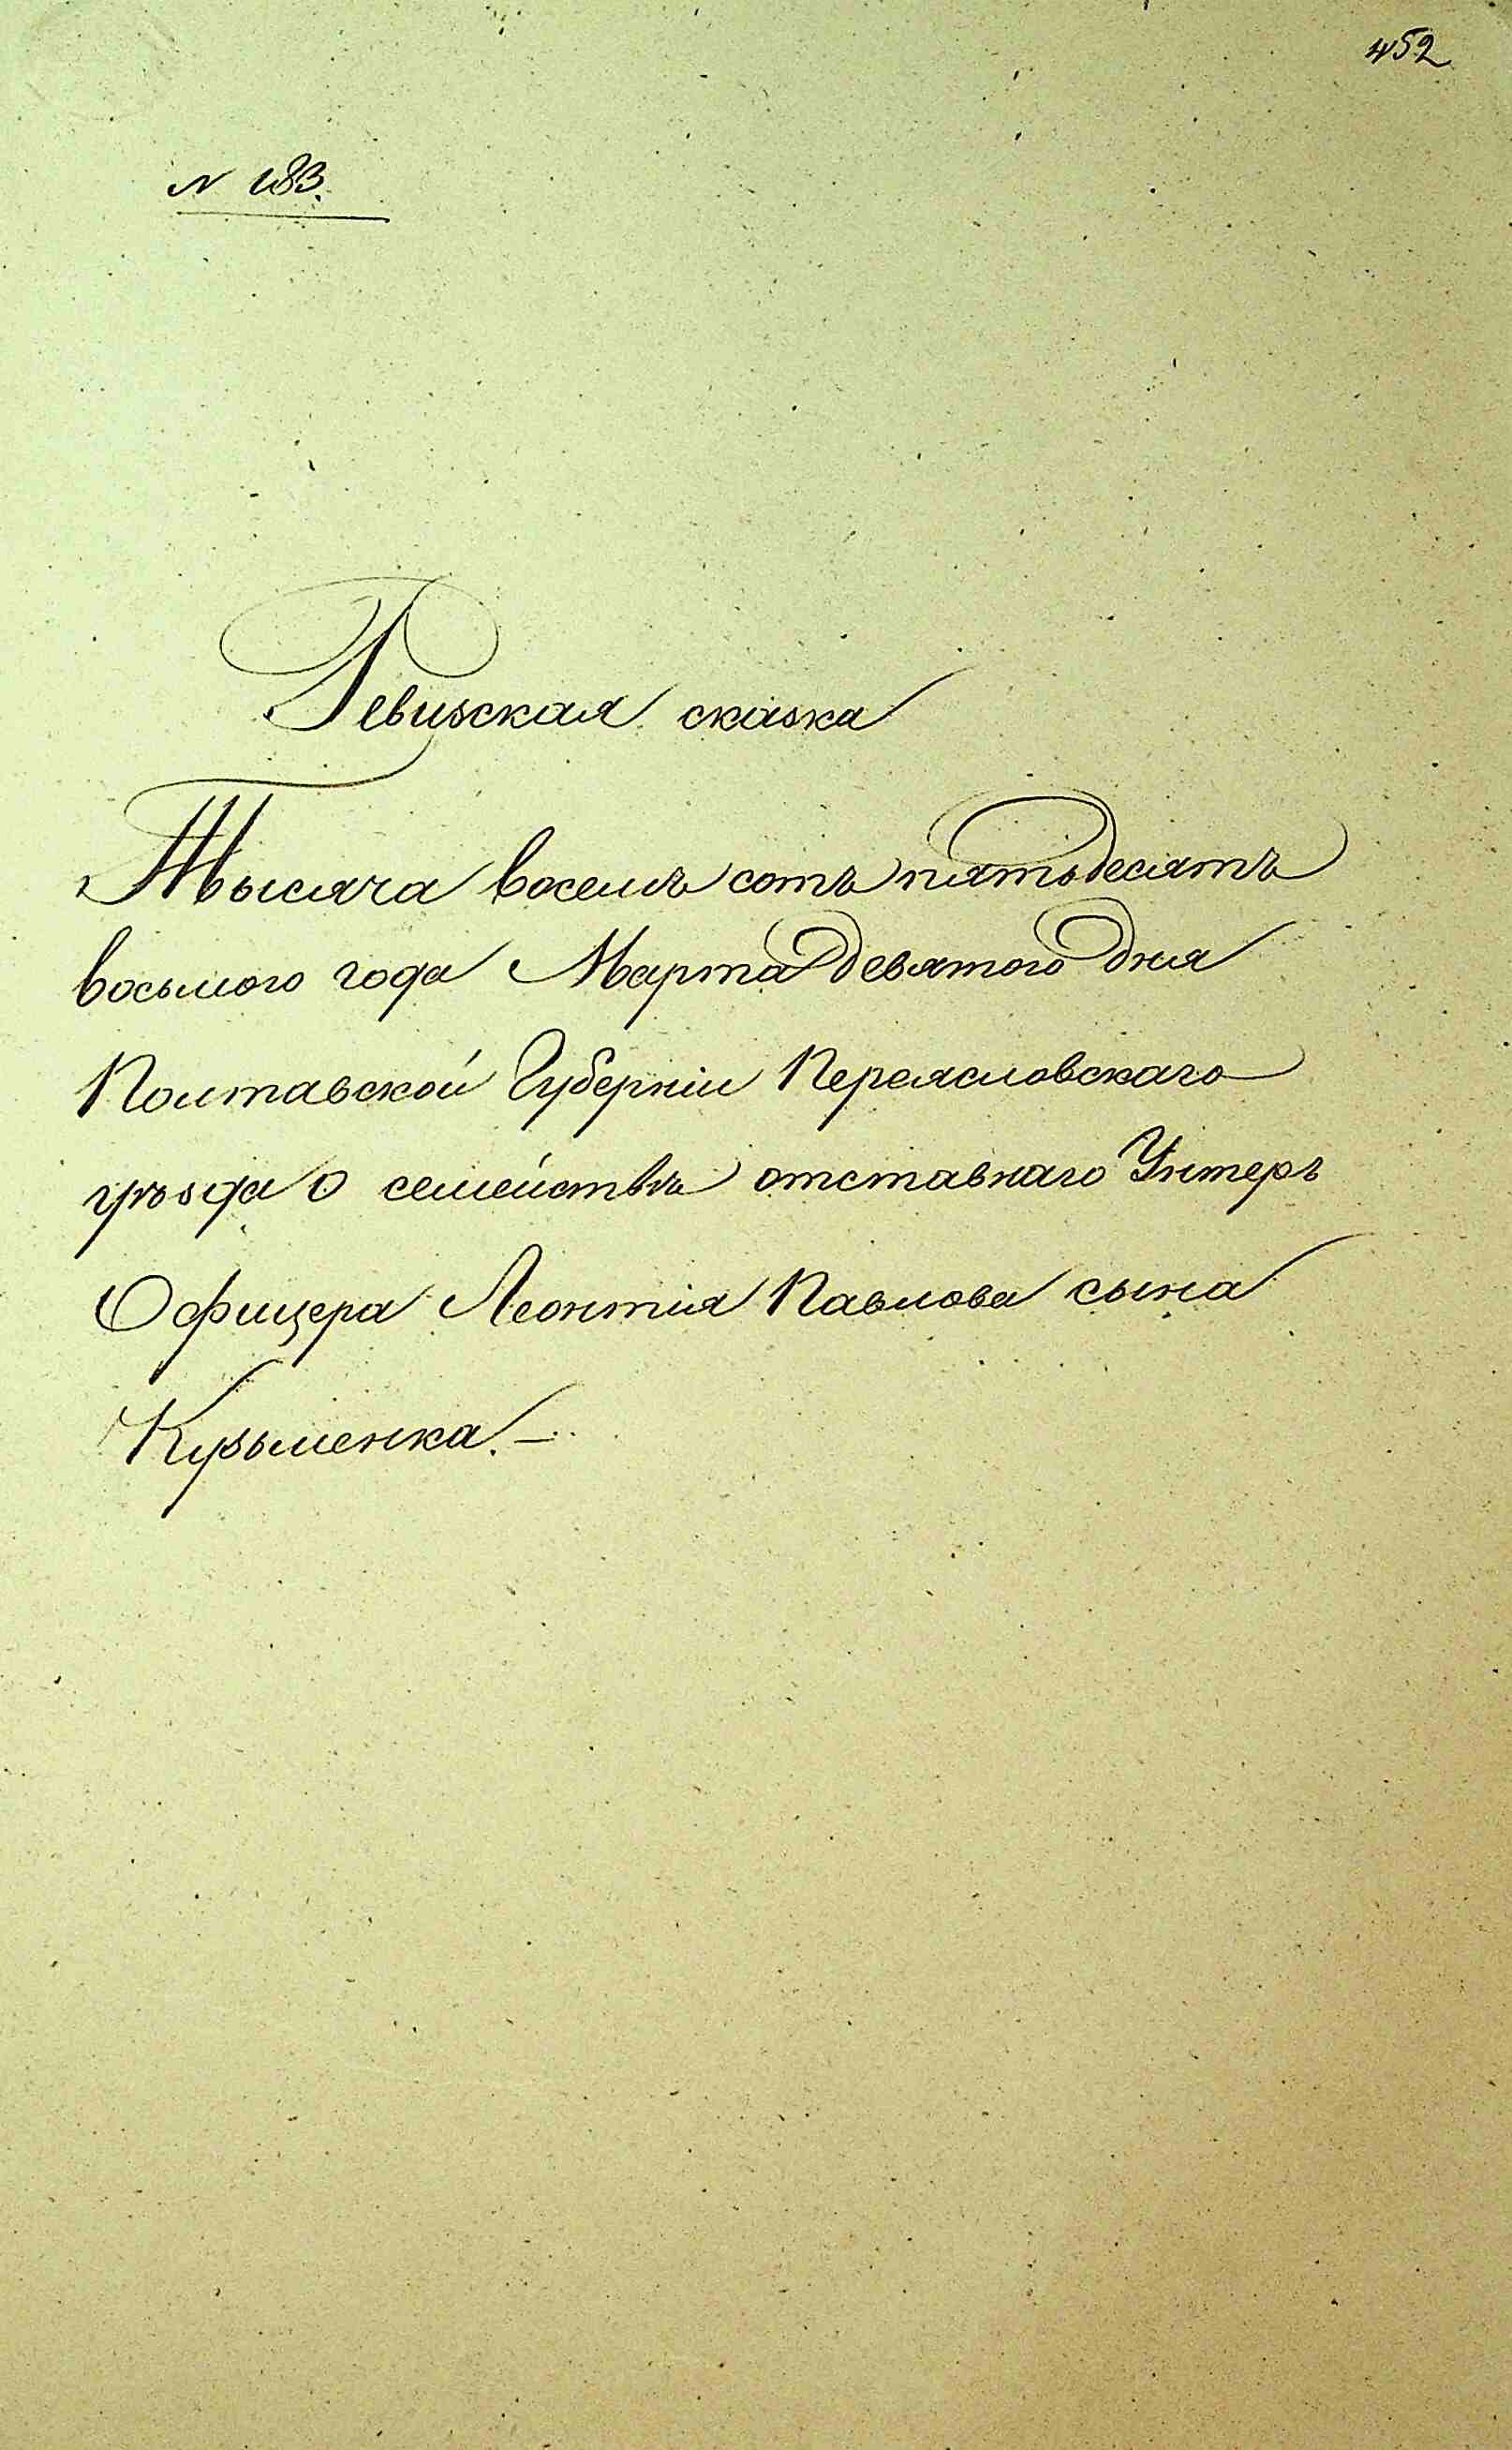 452
N 183.
Ревизская сказка
Тысяча восемь сотъ пятьдесятъ
восьмого года Марта девятого дня
Полтавской Губерніи Переясловскаго
уѣзда о семействѣ отставнаго Унтеръ
Офицера Леонтія Павлова сына
Кузьменка. —